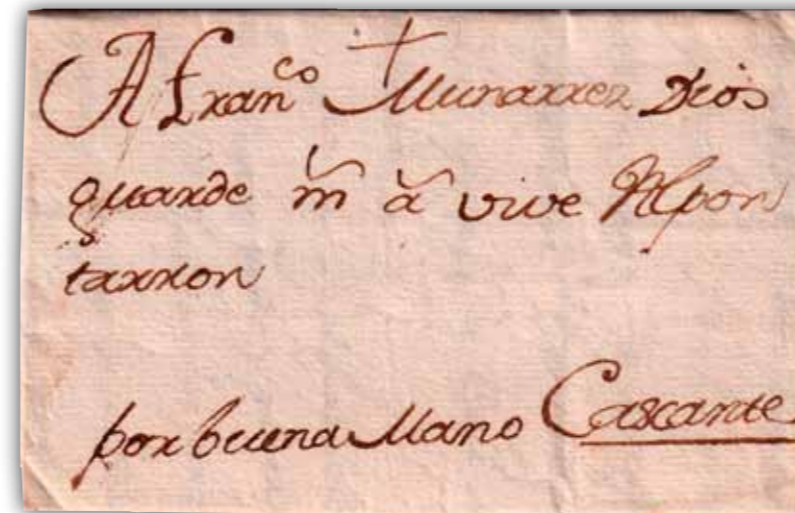 A Fran.co Munarrez Dios
guarde m a vive Alpon
tarron
por buena Mano Cascante